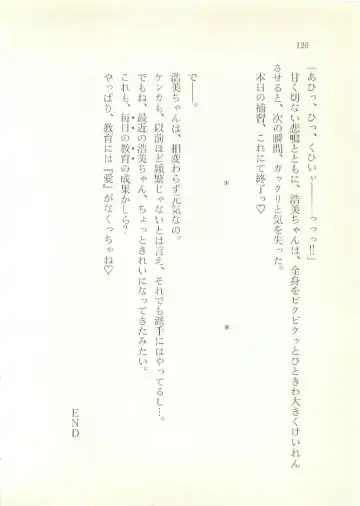 126
「あひっ、ひっ、くひぃ――　っっっ!!」
甘く切ない悲鳴とともに、浩美ちゃんは、全身をピクピクッとひときわ大きくけいれん
させると、次の瞬間、ガックリと気を失った。
本日の補習、これにて終了っ♡
＊　＊
で――。
浩美ちゃんは、相変わらず元気なの。
ケンカも、以前ほど頻繁じゃないとは言え、それでも派手にはやってるし…。
でもね、最近の浩美ちゃん、ちょっときれいになってきたみたい。
これも、毎日の教育の成果かしら?
やっぱり、教育には『愛』がなくっちゃね♡
END